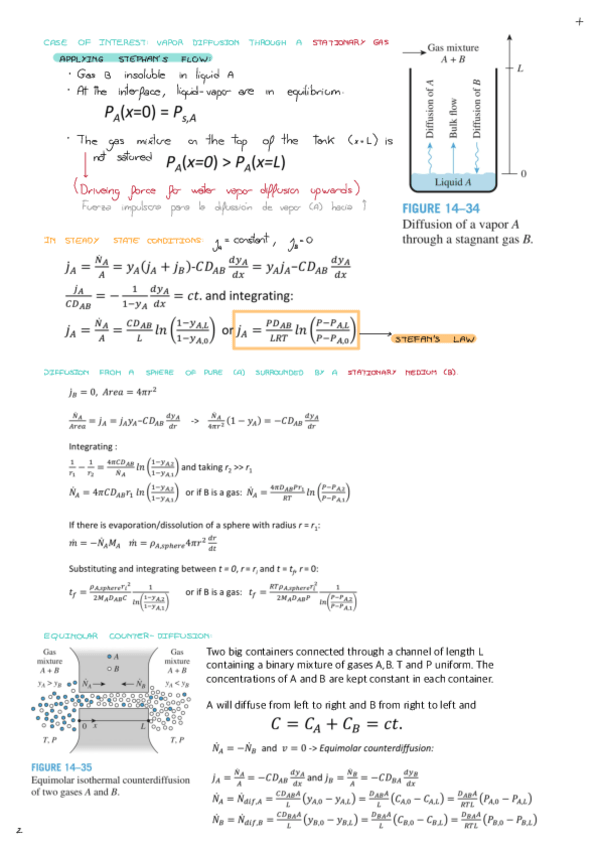 CASE OF INTEREST: VAPOR DIFFUSION THROUGH A STATIONARY GAS
APPLYING STEPHAN'S FLOW:
· Gas B insoluble in liquid A
· At the interface, liquid-vapor are in equilibrium:
P_A(x=0) = P_s,A
· The gas mixture on the top of the tank (x=L) is
not satured P_A(x=0) > P_A(x=L)
(Driveing force for water vapor diffusion upwards)
Fuerza impulsora para la difusión de vapor (A) hacia ↑
Gas mixture
A + B
L
Diffusion of A
Bulk flow
Diffusion of B
0
Liquid A
FIGURE 14–34
Diffusion of a vapor A
through a stagnant gas B.
IN STEADY STATE CONDITIONS: j_A = constant, j_B = 0
j_A = Ṅ_A/A = y_A(j_A + j_B)-CD_AB dy_A/dx = y_A j_A–CD_AB dy_A/dx
j_A/CD_AB = − 1/(1−y_A) dy_A/dx = ct. and integrating:
j_A = Ṅ_A/A = CD_AB/L ln((1−y_A,L)/(1−y_A,0)) or j_A = PD_AB/LRT ln((P−P_A,L)/(P−P_A,0)) → STEFAN'S LAW
DIFFUSION FROM A SPHERE OF PURE (A) SURROUNDED BY A STATIONARY MEDIUM (B).
j_B = 0, Area = 4πr²
Ṅ_A/Area = j_A = j_A y_A-CD_AB dy_A/dr -> Ṅ_A/4πr² (1 − y_A) = −CD_AB dy_A/dr
Integrating :
1/r₁ − 1/r₂ = 4πCD_AB/Ṅ_A ln((1−y_A,2)/(1−y_A,1)) and taking r₂ >> r₁
Ṅ_A = 4πCD_AB r₁ ln((1−y_A,2)/(1−y_A,1)) or if B is a gas: Ṅ_A = 4πD_AB P r₁/RT ln((P−P_A,2)/(P−P_A,1))
If there is evaporation/dissolution of a sphere with radius r = r₁:
ṁ = −Ṅ_A M_A ṁ = ρ_A,sphere 4πr² dr/dt
Substituting and integrating between t = 0, r = r_i and t = t_f, r = 0:
t_f = ρ_A,sphere r_i²/2M_A D_AB C 1/ln((1−y_A,2)/(1−y_A,1)) or if B is a gas: t_f = RTρ_A,sphere r_i²/2M_A D_AB P 1/ln((P−P_A,2)/(P−P_A,1))
EQUIMOLAR COUNTER-DIFFUSION:
Gas
mixture
A + B
y_A > y_B
A
B
Ṅ_A
Ṅ_B
Gas
mixture
A + B
y_A < y_B
0
x
L
T, P
T, P
FIGURE 14–35
Equimolar isothermal counterdiffusion
of two gases A and B.
Two big containers connected through a channel of length L
containing a binary mixture of gases A,B. T and P uniform. The
concentrations of A and B are kept constant in each container.
A will diffuse from left to right and B from right to left and
C = C_A + C_B = ct.
Ṅ_A = −Ṅ_B and v = 0 -> Equimolar counterdiffusion:
j_A = Ṅ_A/A = −CD_AB dy_A/dx and j_B = Ṅ_B/A = −CD_BA dy_B/dx
Ṅ_A = Ṅ_dif,A = CD_AB A/L (y_A,0 − y_A,L) = D_AB A/L (C_A,0 − C_A,L) = D_AB A/RTL (P_A,0 − P_A,L)
Ṅ_B = Ṅ_dif,B = CD_BA A/L (y_B,0 − y_B,L) = D_BA A/L (C_B,0 − C_B,L) = D_BA A/RTL (P_B,0 − P_B,L)
2